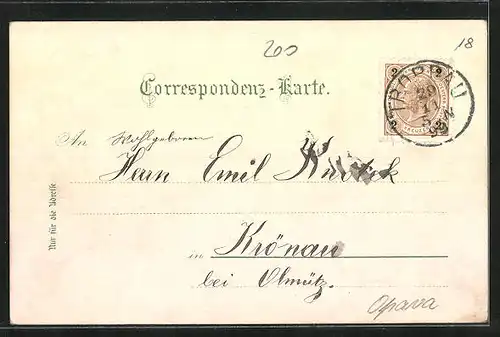 200
18
Correspondenz-Karte.
TROPPAU
An Wohlgeboren
Herrn Emil
in Krönau
bei Olmütz.
Nur für die Adresse
Opava